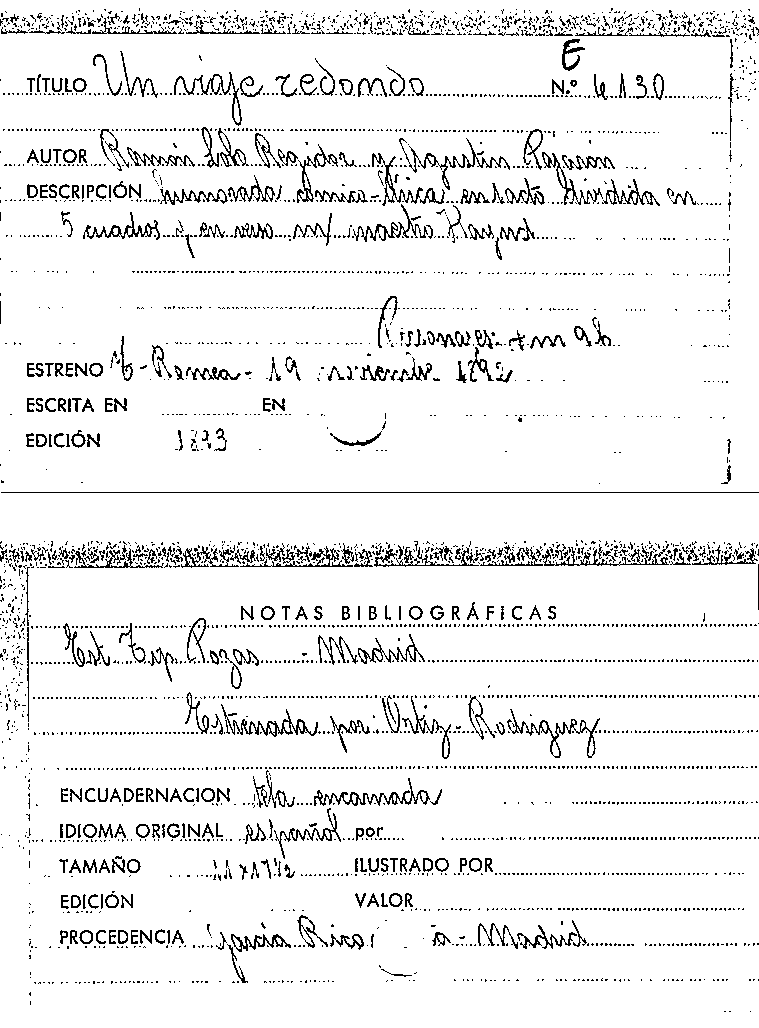 E
TÍTULO Un viaje redondo N.º 6130
AUTOR Ramón Lobo Regidor y Agustin Pajarón
DESCRIPCIÓN humorada cómico-lírica en 1 acto dividida en
5 cuadros y en verso m/ maestro
Personajes: 7 m 9 h
ESTRENO T- Romea - 19 noviembre 1892
ESCRITA EN EN
EDICIÓN 1893
NOTAS BIBLIOGRÁFICAS
Est. Tip. Pozas - Madrid
Estrenada por: Ortiz - Rodriguez
ENCUADERNACION tela encarnada
IDIOMA ORIGINAL español por
TAMAÑO 11 x 17 1/2 ILUSTRADO POR
EDICIÓN VALOR
PROCEDENCIA García Rico a - Madrid